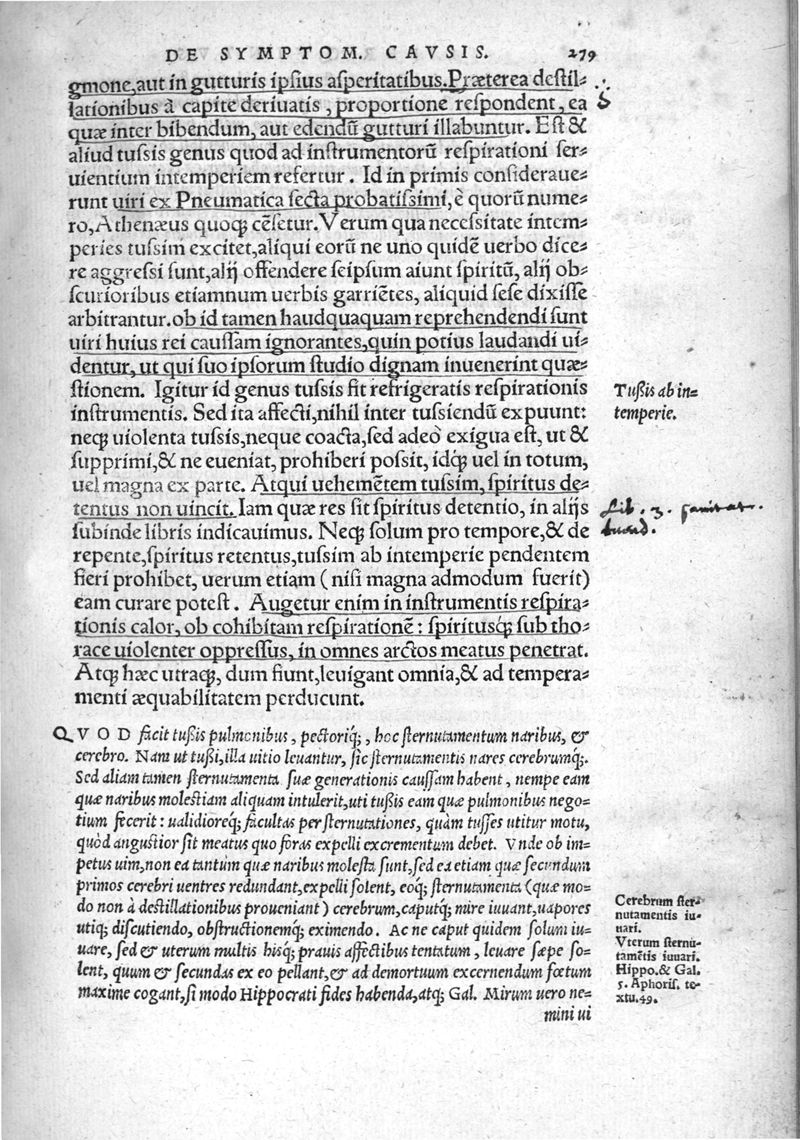 DE SYMPTOM. CAVSIS. 279
gmone, aut in gutturis ipsius asperitatibus. Præterea destil-
lationibus à capite deriuatis, proportione respondent, ea
quæ inter bibendum, aut edendū gutturi illabuntur. Est &
aliud tussis genus quod ad instrumentorū respirationi ser-
uientium intemperiem refertur. Id in primis considera­ue-
runt uiri ex Pneumatica secta probatissimi, è quorū nume-
ro, Athenæus quoq; cēsetur. Verum qua necessitate intem-
peries tussim excitet, aliqui eorū ne uno quidē uerbo dice-
re aggressi sunt, alij offendere seipsum aiunt spiritū, alij ob-
scurioribus etiamnum uerbis garriētes, aliquid sese dixisse
arbitrantur. ob id tamen haudquaquam reprehendendi sunt
uiri huius rei caussam ignorantes, quin potius laudandi ui-
dentur, ut qui suo ipsorum studio dignam inuenerint quæ-
stionem. Igitur id genus tussis fit refrigeratis respirationis
instrumentis. Sed ita affecti, nihil inter tussiendū expuunt:
neq; uiolenta tussis, neque coacta, sed adeò exigua est, ut &
supprimi, & ne eueniat, prohiberi possit, idq; uel in totum,
uel magna ex parte. Atqui uehemētem tussim, spiritus de-
tentus non uincit. Iam quæ res sit spiritus detentio, in alijs
subinde libris indicauimus. Neq; solum pro tempore, & de
repente, spiritus retentus, tussim ab intemperie pendentem
fieri prohibet, uerum etiam (nisi magna admodum fuerit)
eam curare potest. Augetur enim in instrumentis respira-
tionis calor, ob cohibitam respirationē: spiritusq; sub tho-
race uiolenter oppressus, in omnes arctos meatus penetrat.
Atq; hæc utraq;, dum fiunt, leuigant omnia, & ad tempera-
menti æquabilitatem perducunt.
Tußis ab in-
temperie.
Lib. 3.
QVOD facit tußis pulmonibus, pectoriq;, hoc sternutamentum naribus, &
cerebro. Nam ut tußi, illa uitio leuantur, sic sternutamentis nares cerebrumq;.
Sed aliam tamen sternutamenta suæ generationis caussam habent, nempe eam
quæ naribus molestiam aliquam intulerit, uti tußis eam quæ pulmonibus nego-
tium fecerit: ualidioreq; facultas per sternutationes, quàm tusses utitur motu,
quòd angustior sit meatus quo foras expelli excrementum debet. Vnde ob im-
petus uim, non ea tantùm quæ naribus molesta sunt, sed ea etiam quæ secundum
primos cerebri uentres redundant, expelli solent, eoq; sternutamenta (quæ mo-
do non à destillationibus proueniant) cerebrum, caputq; mire iuuant, uapores
utiq; discutiendo, obstructionemq; eximendo. Ac ne caput quidem solum iu-
uare, sed & uterum multis hisq; prauis affectibus tentatum, leuare sæpe so-
lent, quum & secundas ex eo pellant, & ad demortuum excernendum fœtum
maxime cogant, si modo Hippocrati fides habenda, atq; Gal. Mirum uero ne-
mini ui
Cerebrum ster-
nutamentis iu-
uari.
Vterum sternu-
tamētis iuuari.
Hippo. & Gal.
5. Aphoris. te-
xtu. 49.